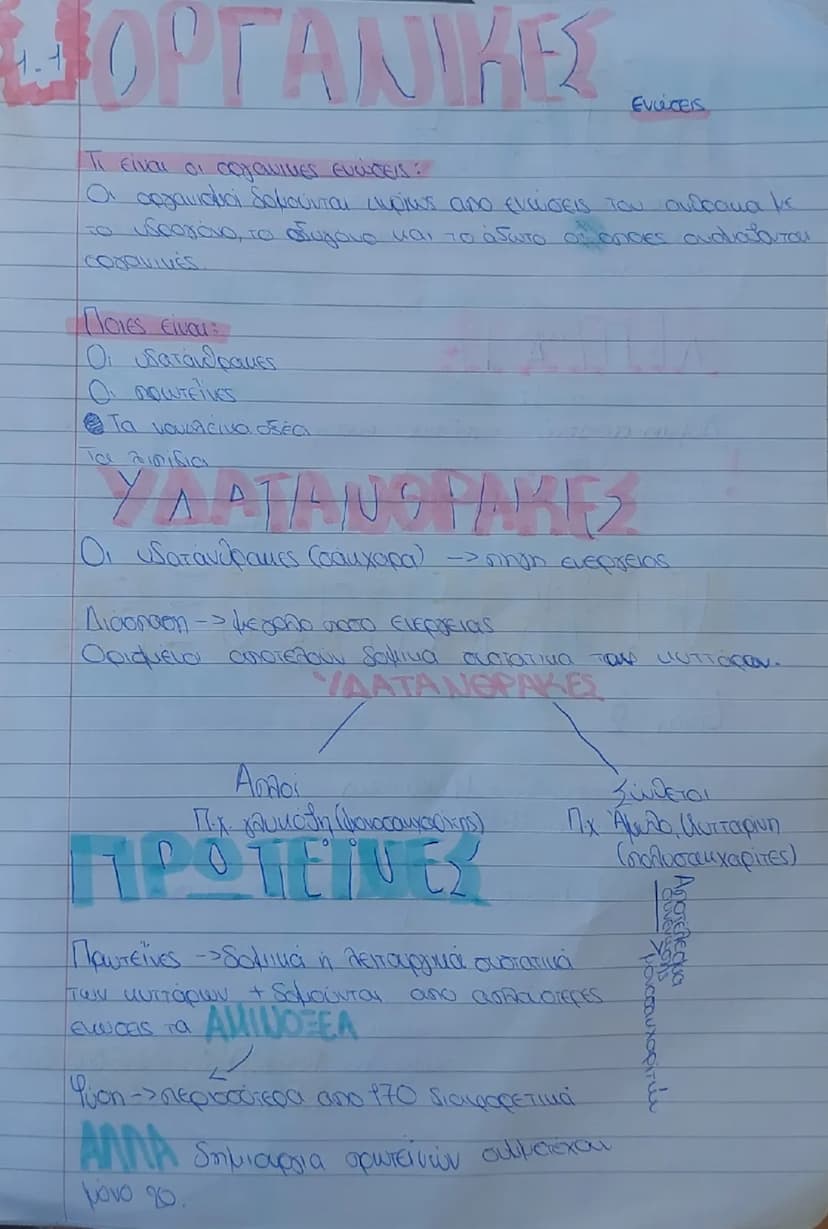 1.1 ΟΡΓΑΝΙΚΕΣ
ενώσεις
Τι είναι οι οργανικές ενώσεις:
Οι οργανισμοί δομούνται κυρίως από ενώσεις του άνθρακα με
το υδρογόνο, το οξυγόνο και το άζωτο οι οποίες ονομάζονται
οργανικές.
Ποιες είναι:
Οι υδατάνθρακες
Οι πρωτεΐνες
Τα νουκλεϊκά οξέα
Τα λιπίδια
ΥΔΑΤΑΝΘΡΑΚΕΣ
Οι υδατάνθρακες (σάκχαρα) -> πηγή ενέργειας
Διάσπαση -> μεγάλο ποσό ενέργειας
Ορισμένοι αποτελούν δομικά συστατικά των κυττάρων.
ΥΔΑΤΑΝΘΡΑΚΕΣ
Απλοί
Π.χ γλυκόζη (μονοσακχαρίτης)
Σύνθετοι
Π.χ Άμυλο, Κυτταρίνη
(πολυσακχαρίτες)
Αποτέλεσμα
συνένωσης
-> μονοσακχαριτών
ΠΡΩΤΕΪΝΕΣ
Πρωτεΐνες -> δομικά ή λειτουργικά συστατικά
των κυττάρων + δομούνται από απλούστερες
ενώσεις τα ΑΜΙΝΟΞΕΑ
Φύση -> περισσότερα από 170 διαφορετικά
ΑΛΛΑ δημιουργία πρωτεϊνών συμμετέχουν
μόνο 20.